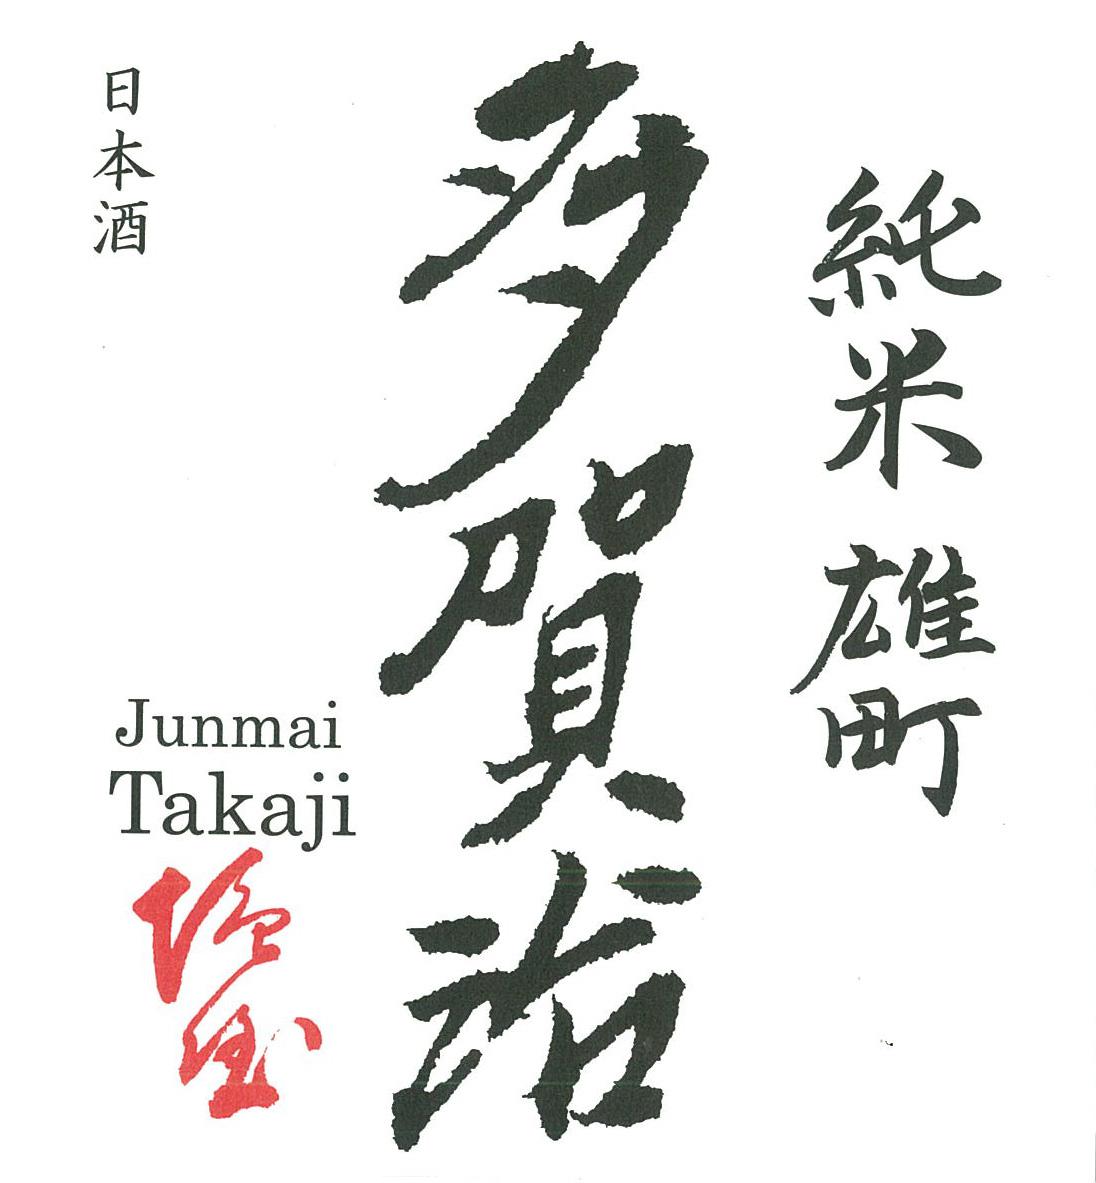 純米 雄町
多賀治
日本酒
Junmai
Takaji